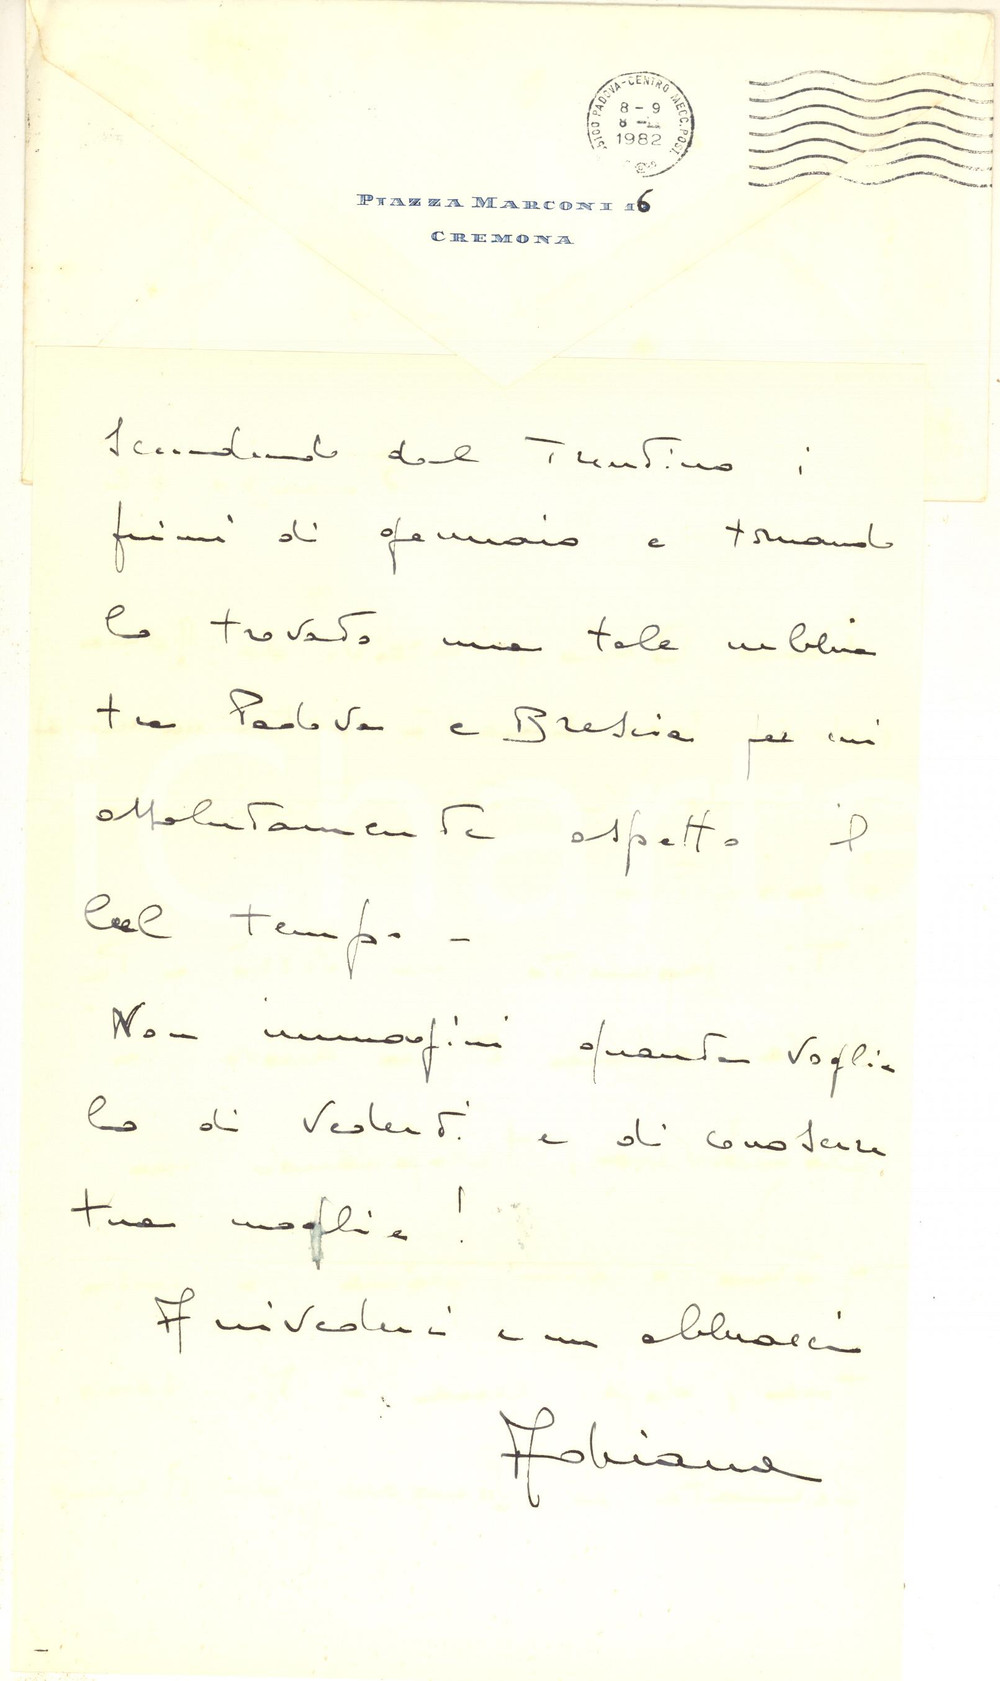 35100 PADOVA-CENTRO MECC. POST.
8-9
8
1982
PIAZZA MARCONI 16
CREMONA
Scendendo dal Trentino i
primi di gennaio e tornando
ho trovato una tale nebbia
tra Padova e Brescia per cui
assolutamente aspetto il
bel tempo -
Non immagini quanta voglia
ho di vederti e di conoscere
tua moglie!
Arrivederci e un abbraccio
Fabiana